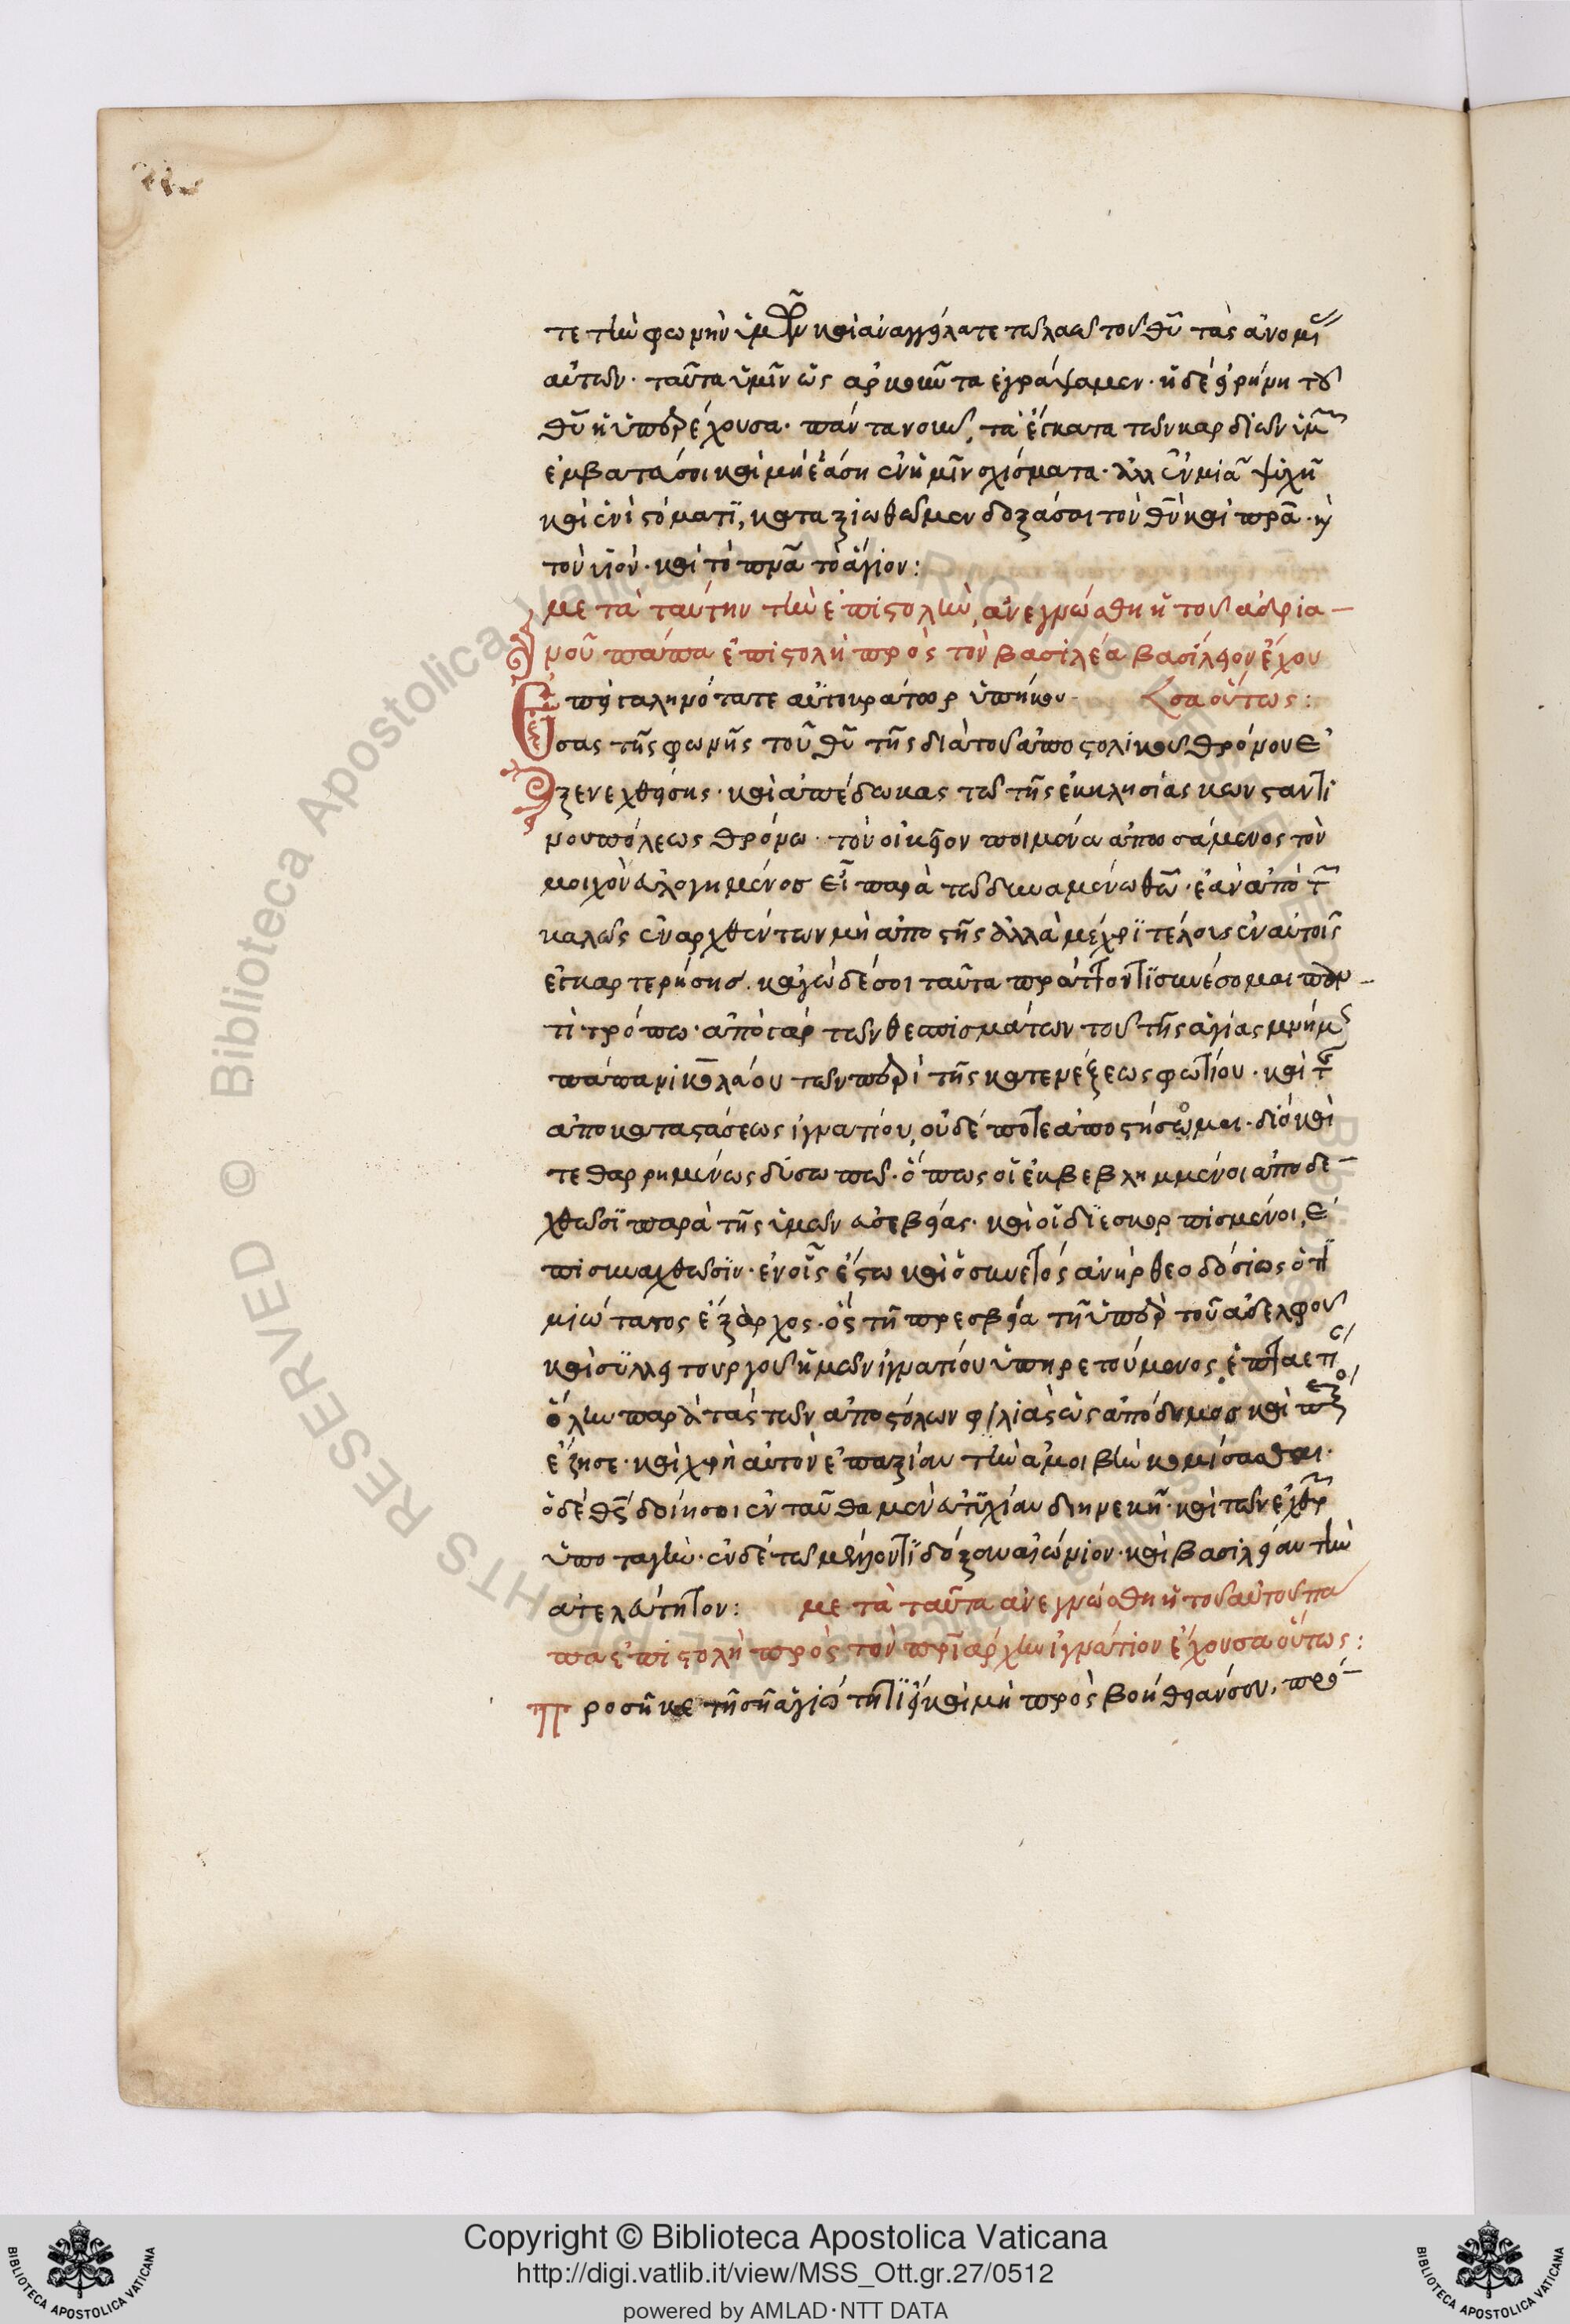 τε τὴν φωνὴν ὑμῶν καὶ ἀναγγείλατε τῶ λαῶ τοῦ θῦ τὰς ἀνομί
αὐτῶν· ταῦτα ὑμῖν ὡς ἀρκοῦντα ἐγράψαμεν· ἡ δὲ εἰρήνη τοῦ
θῦ ἡ ὑπερέχουσα· πάντα νοῦν, τὰ ἔγκατα τῶν καρδιῶν ὑμ
ἐμβατεύσοι καὶ μὴ ἐάση ἐν ἡμῖν σχίσματα· ἀλλ' ἐν μιᾶ ψυχῆ
καὶ ἑνὶ στόματϊ, καταξιωθῶμεν δοξάσαι τὸν θν καὶ πρα· κ
τὸν υἱόν· καὶ τὸ πνα τὸ ἅγιον:
μετὰ ταύτην τὴν ἐπιστολὴν, ἀνεγνώσθη ἡ τοῦ ἀδρια
νοῦ πάπα ἐπιστολὴ πρὸς τὸν βασιλέα βασίλειον ἔχου
πη γαληνότατε αὐτοκράτωρ ὑπήκου
σα οὕτως:
σας τῆς φωνῆς τοῦ θῦ τῆς διὰ τοῦ ἀποστολικοῦ θρόνου ἐ
ξενεχθείσης· καὶ ἀπέδωκας τῶ τῆς ἐκκλησίας κωνσταντι
νουπόλεως θρόνω· τὸν οἰκεῖον ποιμένα ἀπωσάμενος τὸν
μοιχὸν εὐλογημένος εἶ παρὰ τῶ δυναμένω θῶ· ἐὰν ἀπὸ τ
καλῶς ἐναρχθέντων μὴ ἀποστῆς ἀλλὰ μέχρϊ τέλους ἐν αὐτοῖς
ἐγκαρτερήσης· κἀγὼ δέ σοι ταῦτα πράττοντϊ συνέσομαι παν
τὶ τρόπω· ἀπὸ γὰρ τῶν θεσπισμάτων τοῦ τῆς ἁγίας μνήμ
πάπα νικολάου τῶν περὶ τῆς καθαιρέσεως φωτίου· καὶ τ
ἀποκαταστάσεως ἰγνατίου, οὐδέποτε ἀποστήσομαι· διὸ καὶ
τεθαρρημένως δυσωπῶ· ὅπως οἱ ἐκβεβλημμένοι ἀποδε
χθῶσϊ παρὰ τῆς ὑμῶν εὐσεβείας· καὶ οἱ διεσκορπισμένοι, ἐ
πισυναχθῶσϊν· ἐν οἷς ἔστω καὶ ὁ συνετὸς ἀνὴρ θεοδόσιος ὁ τϊ
μιώτατος ἔξαρχος· ὃς τῆ πρεσβεία τῆ ὑπὲρ τοῦ ἀδελφοῦ
καὶ συλλειτουργοῦ ἡμῶν ἰγνατίου ὑπηρετούμενος
ἔζησε· καὶ χρὴ αὐτὸν ἐπαξίαν τὴν ἀμοιβὴν κομίσασθαι·
ὁ δὲ θς δοίη σοι ἐνταῦθα μὲν εὐτυχίαν διηνεκῆ· καὶ τῶν ἐχθρ
ὑποταγήν· ἐν δὲ τῶ μέλλοντϊ δόξαν αἰώνιον· καὶ βασιλείαν τὴν
ἀτελεύτητον: μετὰ ταῦτα ἀνεγνώσθη ἡ τοῦ αὐτοῦ πα
πα ἐπιστολὴ πρὸς τὸν πριάρχην ἰγνάτιον ἔχουσα οὕτως:
Προσῆκε τῆ σῆ ἁγιότητϊ εἰ καὶ μὴ πρὸς βοήθειάν σου,